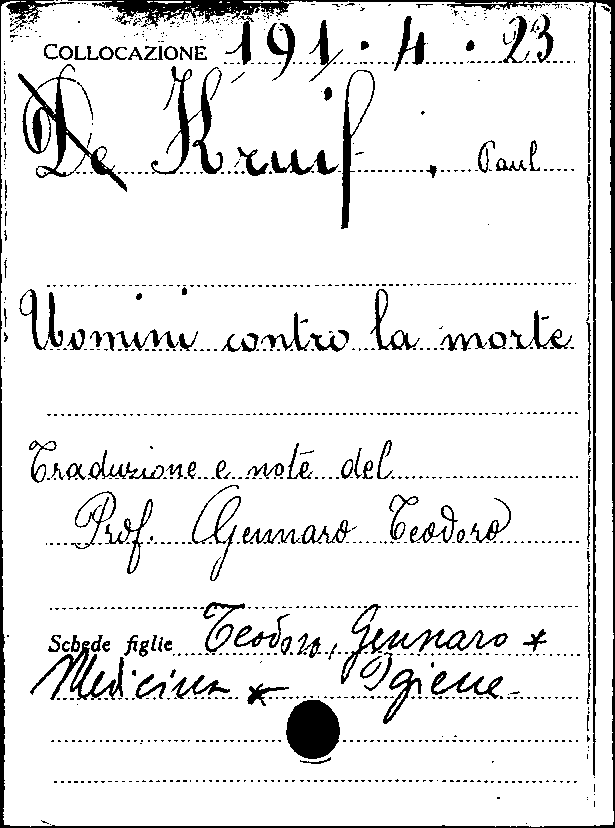 COLLOCAZIONE 191.4.23
De Kruif, Paul
Uomini contro la morte
Traduzione e note del
Prof. Gennaro Teodoro
Schede figlie Teodoro, Gennaro *
Medicina * Igiene